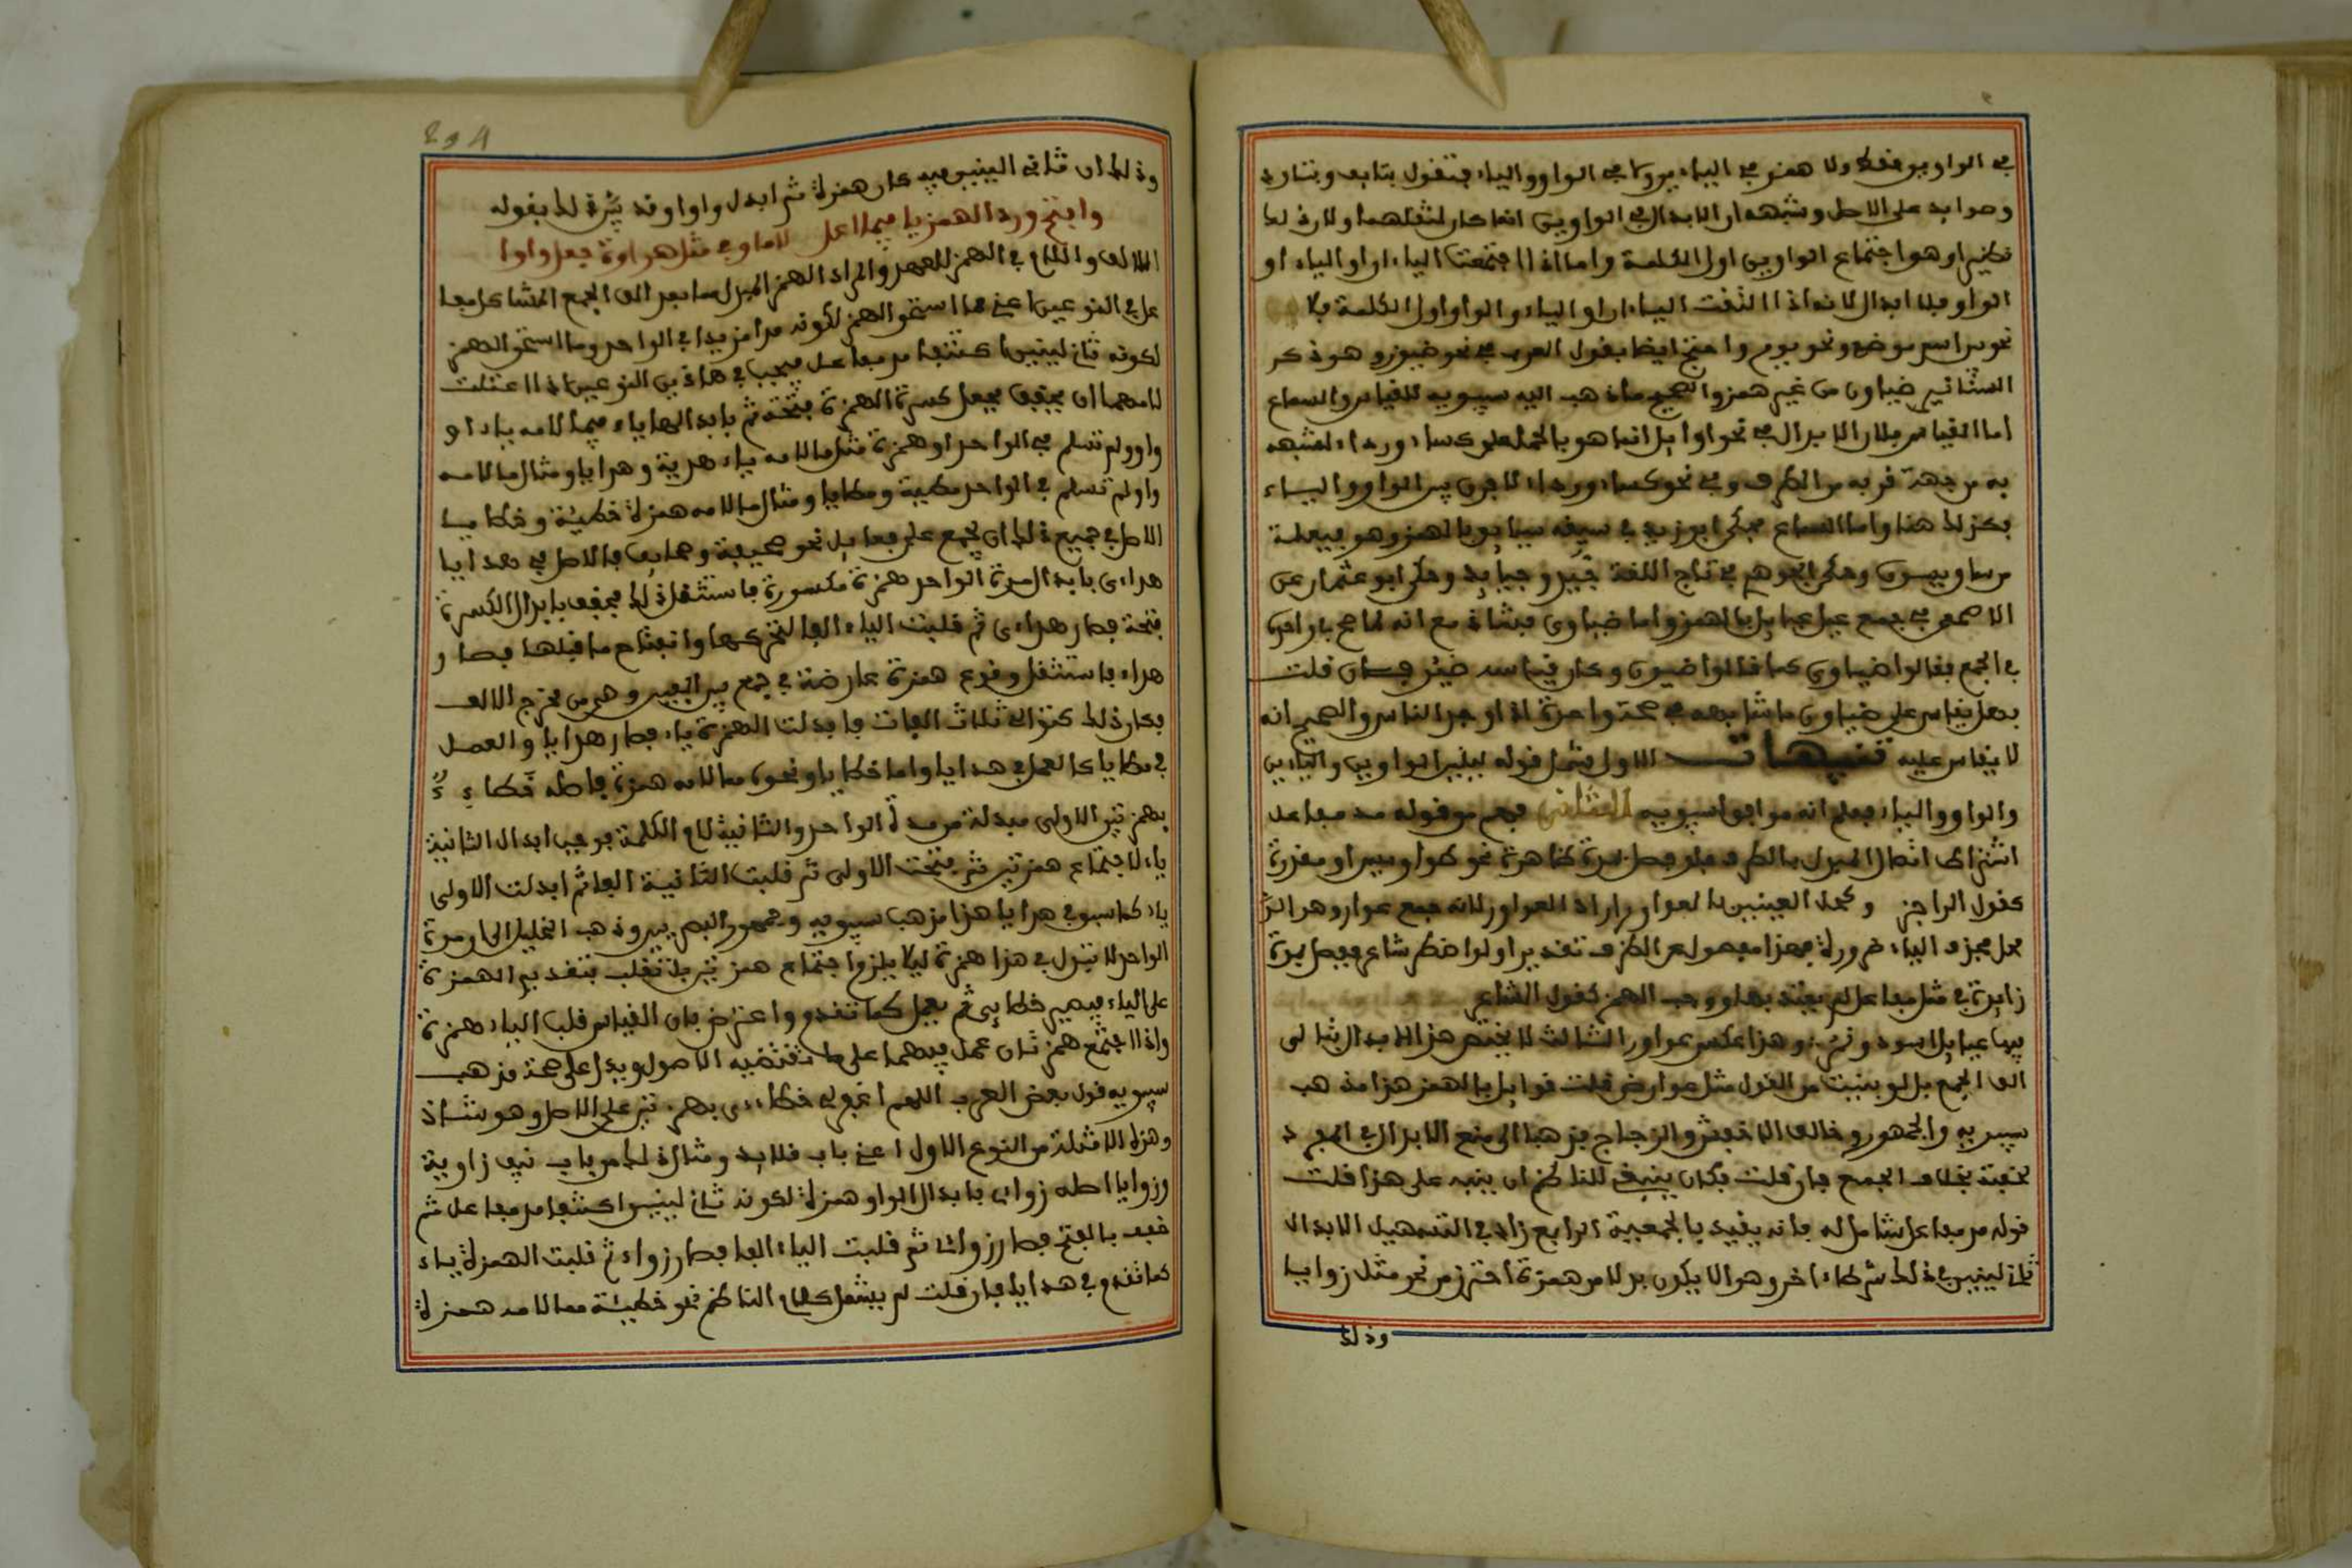 في الواوين فقط ولا همز في اليائين ولا في الواو والياء فتقول نيايف وسيايد
وصوايد على الاصل وشبهه ان الابدال في الواوين انما كان لثقلهما ولان لذلك
نظيرا وهو اجتماع الواوين اول الكلمة واما اذا اجتمعت الياءان او الياء او
الواو فلا ابدال لانه اذا التقت الياءان او الياء والواو اول الكلمة فلا
نحو يين اسم موضع ونحو يوم واحتج ايضا بقول العرب في نحو ضيون وهو ذكر
السنانير ضياون من غير همز والصحيح ما ذهب اليه سيبويه للقياس والسماع
اما القياس فلان الابدال في نحو اوايل انما هو بالحمل على كساء ورداء لشبهه
به من جهة قربه من الطرف وفي نحو كساء ورداء لا فرق بين الواو والياء
فكذلك هنا واما السماع فحكى ابو زيد في سيقه سيايق بالهمز وهو فيعلة
من ساق يسوق وحكى الجوهري في تاج اللغة جيد وجيايد وحكى ابو عثمان عن
الاصمعي في جمع عيل عيايل بالهمز واما ضياون فشاذ مع انه لما صح في واحده
في الجمع فقالوا ضياون كما قالوا ضيون وكان قياسه ضين فان قلت
فهل يقاس على ضياون ما شابهه في صحة واحده اذا وجد الناس والصحيح انه
لا يقاس عليه تنبيهات الاول شمل قوله لينين الواوين واليائين
والواو والياء فعلم انه موافق لسيبويه الثاني فهم من قوله مد مفاعل
اشتراط اتصال المبدل بالطرف فلو فصل بمدة ظاهرة نحو طواويس او مقدرة
كقول الراجز وكحل العينين بالعواور اراد العواوير لانه جمع عوار وهو الرمد
فحذف الياء ضرورة فهذا مفصول عن الطرف تقديرا ولو اضطر شاعر ففصل بمدة
زايدة في مثل مفاعل لم يعتد بها ووجب الهمز كقول الشاعر
فيها عيايل اسود ونمر وهذا عكس عواور الثالث لا يختص هذا الابدال بتالي
الف الجمع بل لو بنيت من القول مثل عوارض قلت قوايل بالهمز هذا مذهب
سيبويه والجمهور وخالف الاخفش والزجاج فذهبا الى منع الابدال في المفرد
لخفته بخلاف الجمع فان قلت فكان ينبغي للناظم ان ينبه على هذا قلت
قوله مد مفاعل شامل له فانه يقيد بالجمعية الرابع زاد في التسهيل الابدال
ثاني لينين في ذلك شرطا اخر وهو الا يكون بدلا من همزة احترز من نحو مثل زوايا
وذلك
وذلك ان ثاني اللينين فيه كان همزة ثم ابدل واوا وقد اشار لذلك بقوله
وافتح ورد الهمز يا فيما اعل لاما وفي مثل هراوة جعل واوا
الالف واللام في الهمز للعهد والمراد الهمز المبدل مما بعد الف الجمع المشاكل مفا
عل في النوعين اعني ما استحق الهمز لكونه مدا مزيدا في الواحد وما استحق الهمز
لكونه ثاني لينين اكتنفا مد مفاعل فيجب في هاذين النوعين اذا اعتلت
لامهما ان يخفف بجعل كسرة الهمزة فتحة ثم بابدالها ياء فيما لامه ياء او
واو ولم تسلم في الواحد او همزة مثال ما لامه ياء هدية وهدايا ومثال ما لامه
واو لم تسلم في الواحد مطية ومطايا ومثال ما لامه همزة خطيئة وخطايا
الاصل في جميع ذلك ان يجمع على فعايل نحو صحيفة وصحايف فالاصل في هدايا
هدائي بابدال مدة الواحد همزة مكسورة فاستثقل ذلك فخفف بابدال الكسرة
فتحة فصار هداءي ثم قلبت الياء الفا لتحركها وانفتاح ما قبلها فصار
هداءا فاستثقل وقوع همزة عارضة في جمع بين الفين وهي من مخرج الالف
فكان ذلك كتوالي ثلاث الفات فابدلت الهمزة ياء فصار هدايا والعمل
في مطايا كالعمل في هدايا واما خطايا ونحوه مما لامه همزة فاصله خطاءء
بهمزتين الاولى مبدلة من مدة الواحد والثانية لام الكلمة فوجب ابدال الثانية
ياء لاجتماع همزتين ثم فتحت الاولى ثم قلبت الثانية الفا ثم ابدلت الاولى
ياء كما سبق في هدايا هذا مذهب سيبويه وجمهور البصريين وذهب الخليل الى ان مدة
الواحد لا تبدل في هذا همزة ليلا يلزم اجتماع همزتين بل تقلب بتقديم الهمزة
على الياء فيصير خطائي ثم يعمل كما تقدم واعترض بان القياس قلب الياء همزة
واذا اجتمع همزتان عمل فيهما على ما تقتضيه الاصول ويدل على صحة مذهب
سيبويه قول بعض العرب اللهم اغفر لي خطاءءى بهمزتين على الاصل وهو شاذ
وهذه الامثلة من النوع الاول اعني باب قلايد ومثال ذلك من باب نيف زاوية
وزوايا اصله زوائي بابدال الواو همزة لكونه ثاني لينين اكتنفا مد مفاعل ثم
خفف بالفتح فصار زواءي ثم قلبت الياء الفا فصار زواءا ثم قلبت الهمزة ياء
كما تقدم في هدايا فان قلت لم يشمل كلام الناظم نحو خطيئة مما لامه همزة